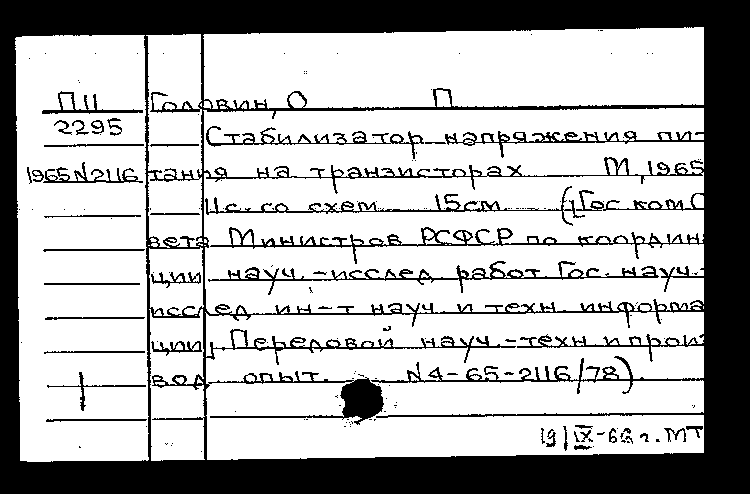 П.11 Головин, О П
2295 Стабилизатор напряжения пи-
1965 N2116 тания на транзисторах М, 1965
11с. со схем 15см (Гос ком С
вета Министров РСФСР по координа
ции науч.-исслед работ. Гос. науч.-
исслед ин-т науч. и техн. информа
ции. Передовой науч.-техн и произ
вод опыт. N4-65-2116/78).
19/IX-66 г. МТ